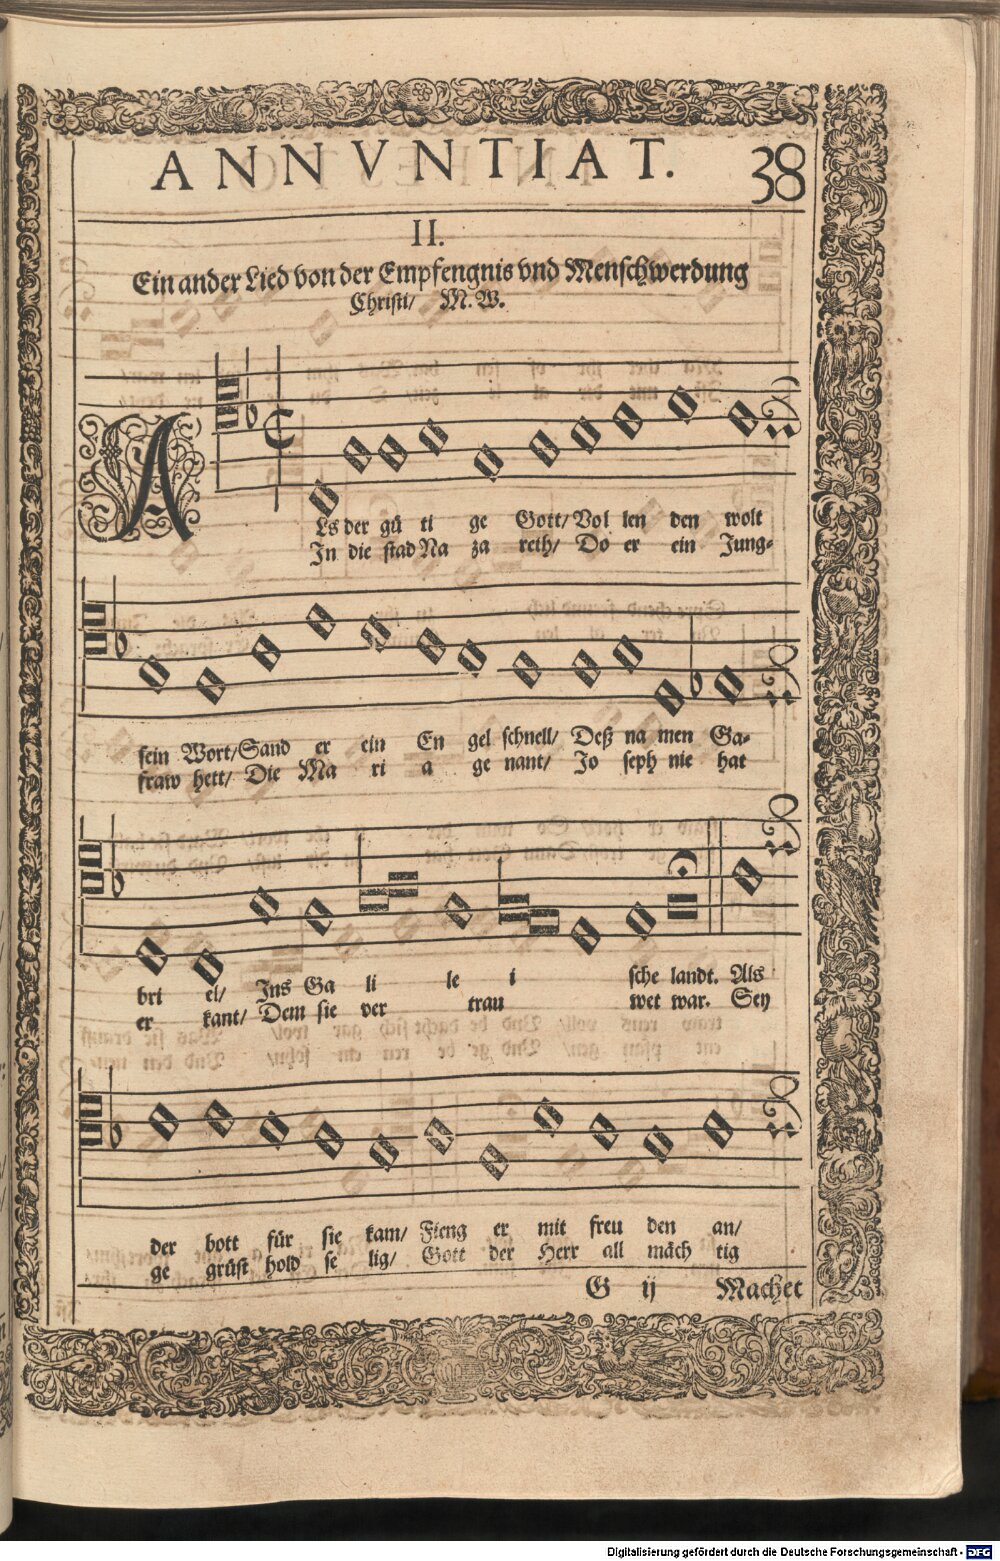 ANNVNTIAT. 38
II.
Ein ander Lied von der Empfengnis vnd Menschwerdung
Christi/ M. W.
ALs der gü ti ge Gott/ Vol len den wolt
In die stad Na za reth/ Do er ein Jung-
sein Wort/ Sand er ein En gel schnell/ Deß na men Ga-
fraw hett/ Die Ma ri a ge nant/ Jo seph nie hat
bri el/ Ins Ga li le i sche landt. Als
er kant/ Dem sie ver trau wet war. Sey
der bott für sie kam/ Fieng er mit freu den an/
ge grüst hold se lig/ Gott der Herr all mäch tig
G ij Machet
Digitalisierung gefördert durch die Deutsche Forschungsgemeinschaft - DFG